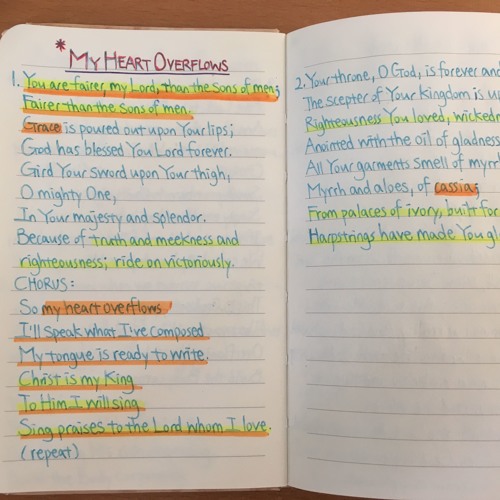 * MY HEART OVERFLOWS
1. You are fairer, my Lord, than the sons of men;
Fairer than the sons of men.
Grace is poured out upon Your lips;
God has blessed You Lord forever.
Gird Your sword upon Your thigh,
O mighty One,
In Your majesty and splendor.
Because of truth and meekness and
righteousness; ride on victoriously.
CHORUS:
So my heart overflows
I'll speak what I've composed
My tongue is ready to write.
Christ is my King
To Him I will sing
Sing praises to the Lord whom I love.
(repeat)
2. Your throne, O God, is forever and
The scepter of Your kingdom is
Righteousness You loved,
Anointed with the oil of gladness
All Your garments smell of
Myrrh and aloes, of cassia;
From palaces of ivory, built for
Harpstrings have made You